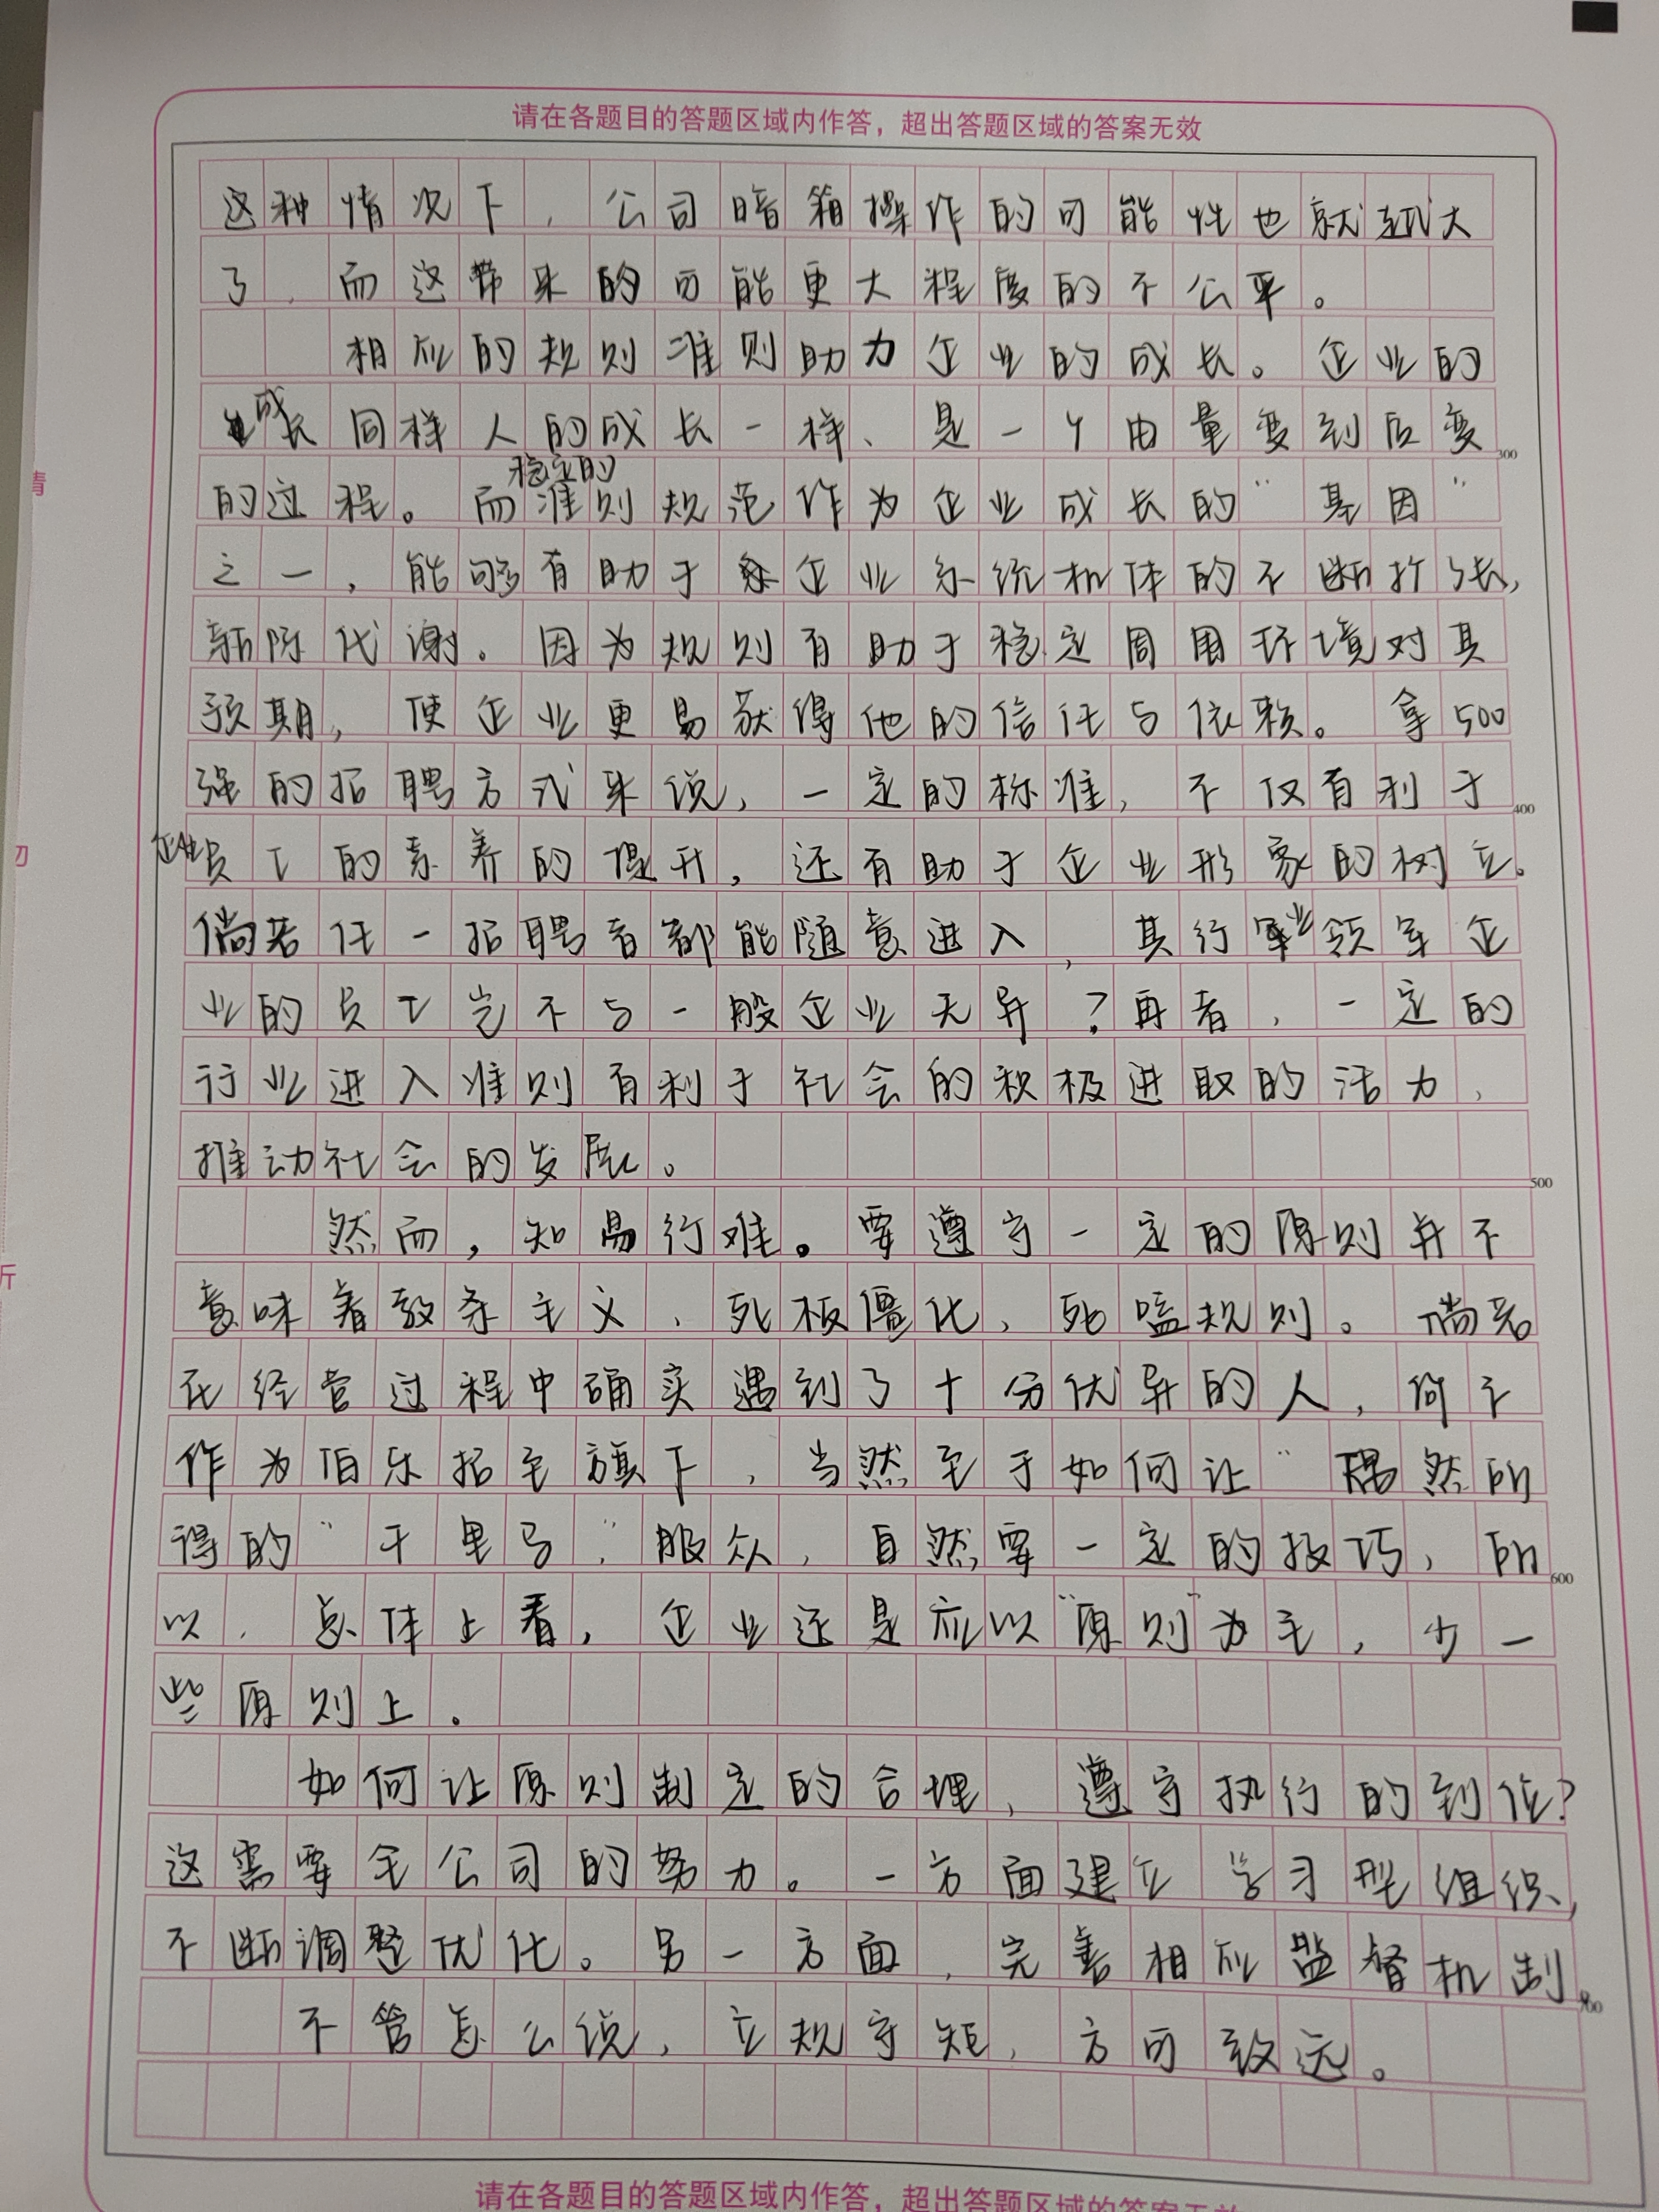 请在各题目的答题区域内作答，超出答题区域的答案无效
这种情况下，公司暗箱操作的可能性也就越大
了，而这带来的可能更大程度的不公平。
相应的规则准则助力企业的成长。企业的
成长同样人的成长一样、是一个由量变到质变
的过程。而稳定的准则规范作为企业成长的“基因”
之一，能够有助于企业系统机体的不断扩张，
新陈代谢。因为规则有助于稳定周围环境对其
预期，使企业更易获得他的信任与依赖。拿500
强的招聘方式来说，一定的标准，不仅有利于
企业员工的素养的提升，还有助于企业形象的树立。
倘若任一招聘者都能随意进入，其行业领军企
业的员工岂不与一般企业无异？再者，一定的
行业进入准则有利于社会的积极进取的活力，
推动社会的发展。
然而，知易行难。要遵守一定的原则并不
意味着教条主义、死板僵化、死嗑规则。倘若
在经营过程中确实遇到了十分优异的人，何不
作为伯乐招至旗下，当然至于如何让“偶然所
得的“千里马”服众，自然要一定的技巧，所
以，总体上看，企业还是应以“原则”为主，少一
些原则上。
如何让原则制定的合理，遵守执行的到位？
这需要全公司的努力。一方面建立学习型组织，
不断调整优化。另一方面，完善相应监督机制。
不管怎么说，立规守矩，方可致远。
300
400
500
600
700
请在各题目的答题区域内作答，超出答题区域的答案无效